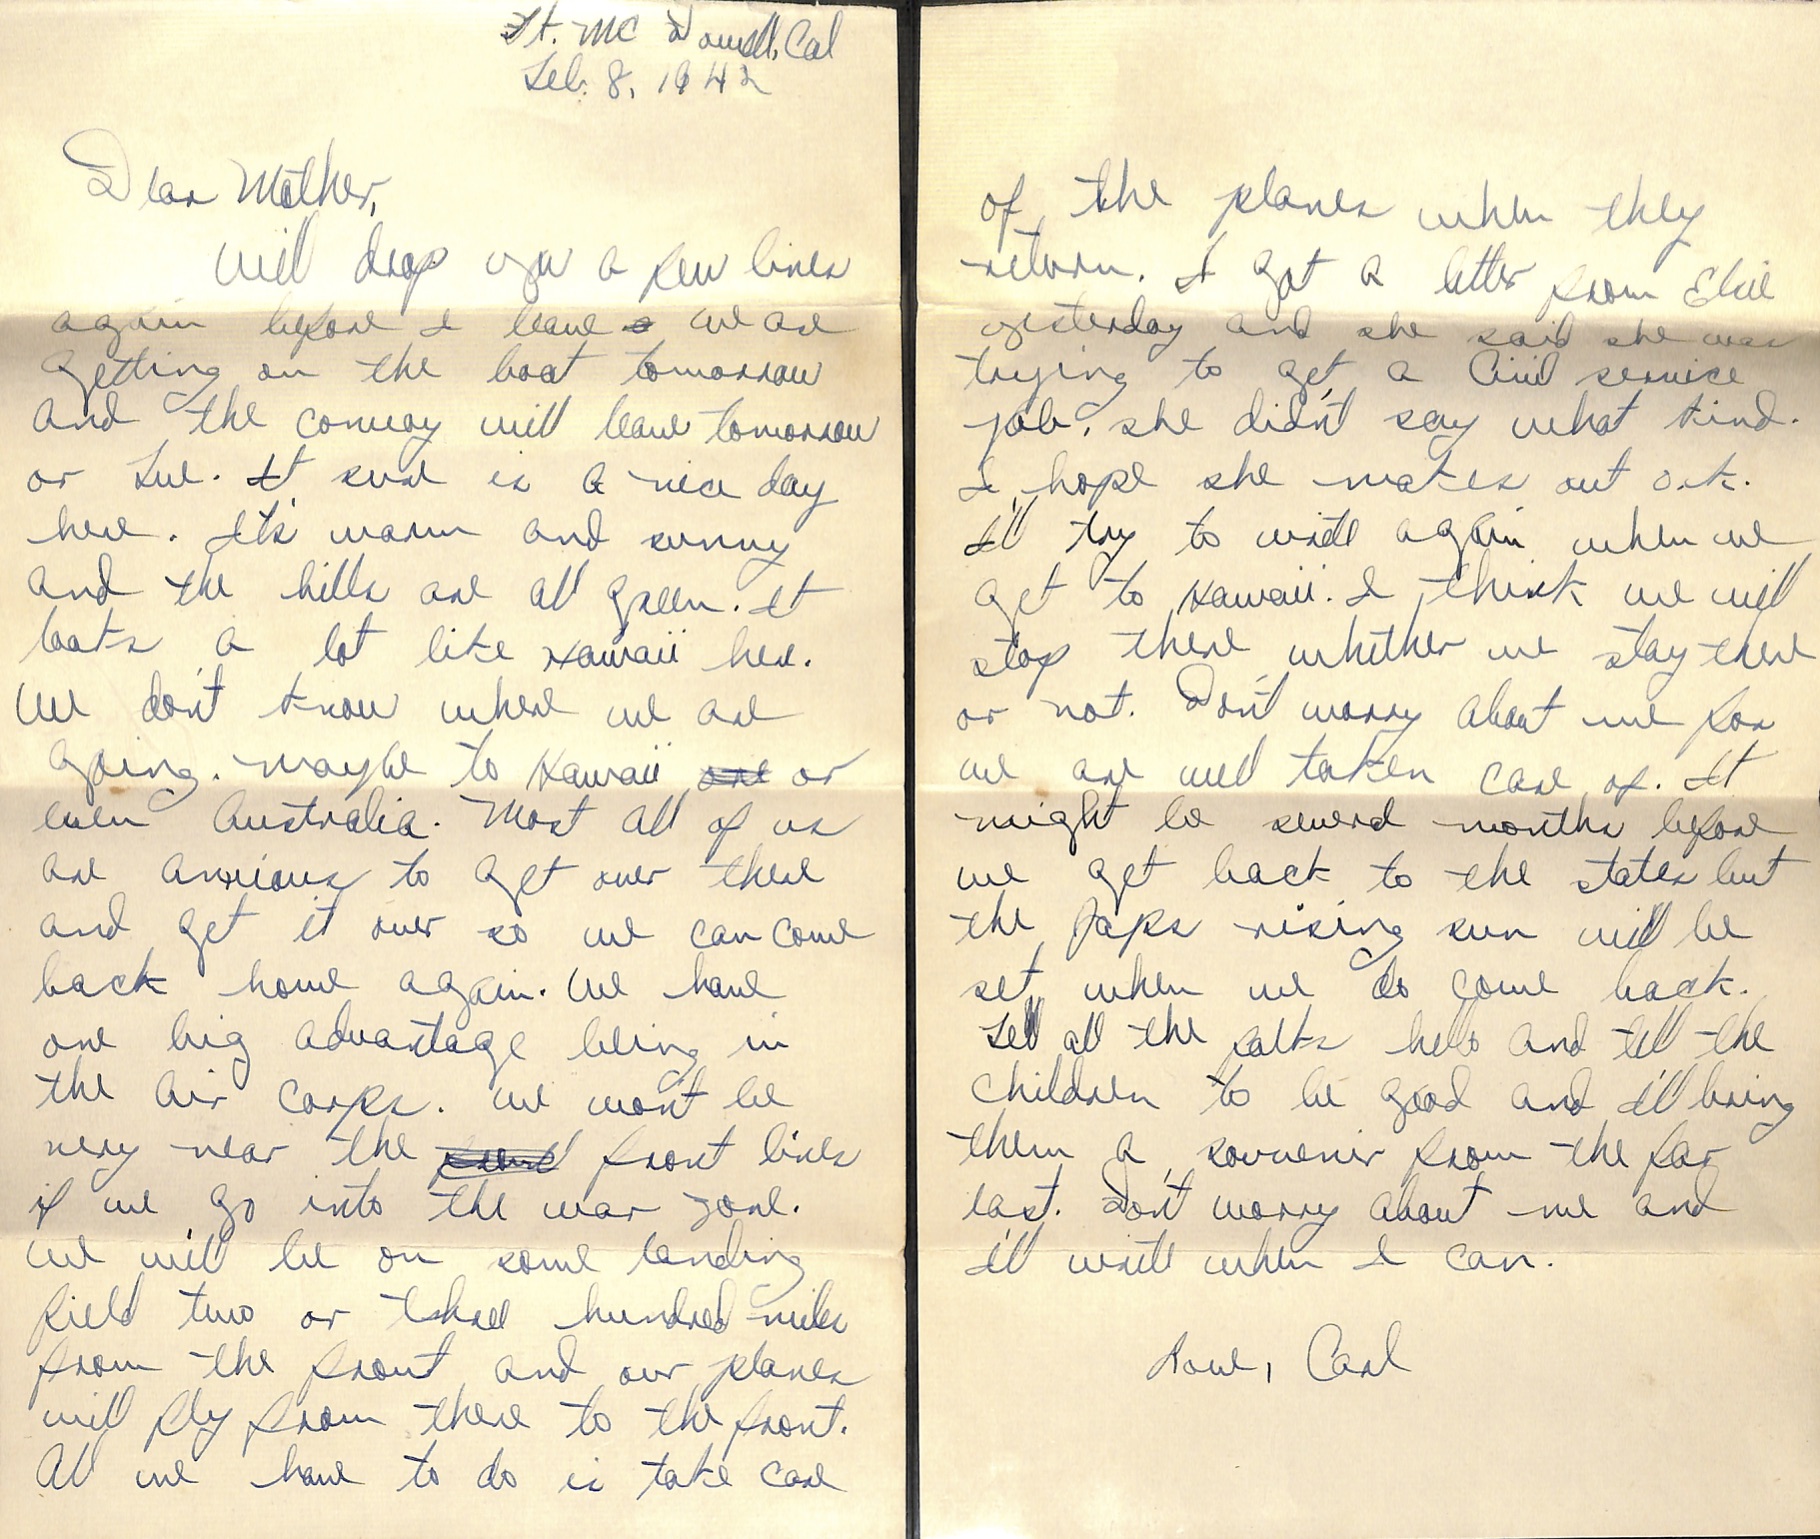 Ft. Mc Dowell, Cal
Feb. 8, 1942
Dear Mother,
Will drop you a few lines
again before I leave we are
getting on the boat tomorrow
and the convoy will leave tomorrow
or Tue. It sure is a nice day
here. It's warm and sunny
and the hills are all green. It
looks a lot like Hawaii here.
We don't know where we are
going. maybe to Hawaii or
even Australia. Most all of us
are anxious to get over there
and get it over so we can come
back home again. We have
one big advantage being in
the air corps. we won't be
very near the front lines
if we go into the war zone.
we will be on some landing
field two or three hundred miles
from the front and our planes
will fly from there to the front.
All we have to do is take care
of the planes when they
return. I got a letter from Elsie
yesterday and she said she was
trying to get a Civil service
job, she didn't say what kind.
I hope she makes out o.k.
I'll try to write again when we
get to Hawaii. I think we will
stop there whether we stay there
or not. Don't worry about me for
we are well taken care of. It
might be several months before
we get back to the states but
the Japs rising sun will be
set when we do come back.
Tell all the folks hello and tell the
children to be good and I'll bring
them a souvenir from the far
east. Don't worry about me and
I'll write when I can.
Love, Carl